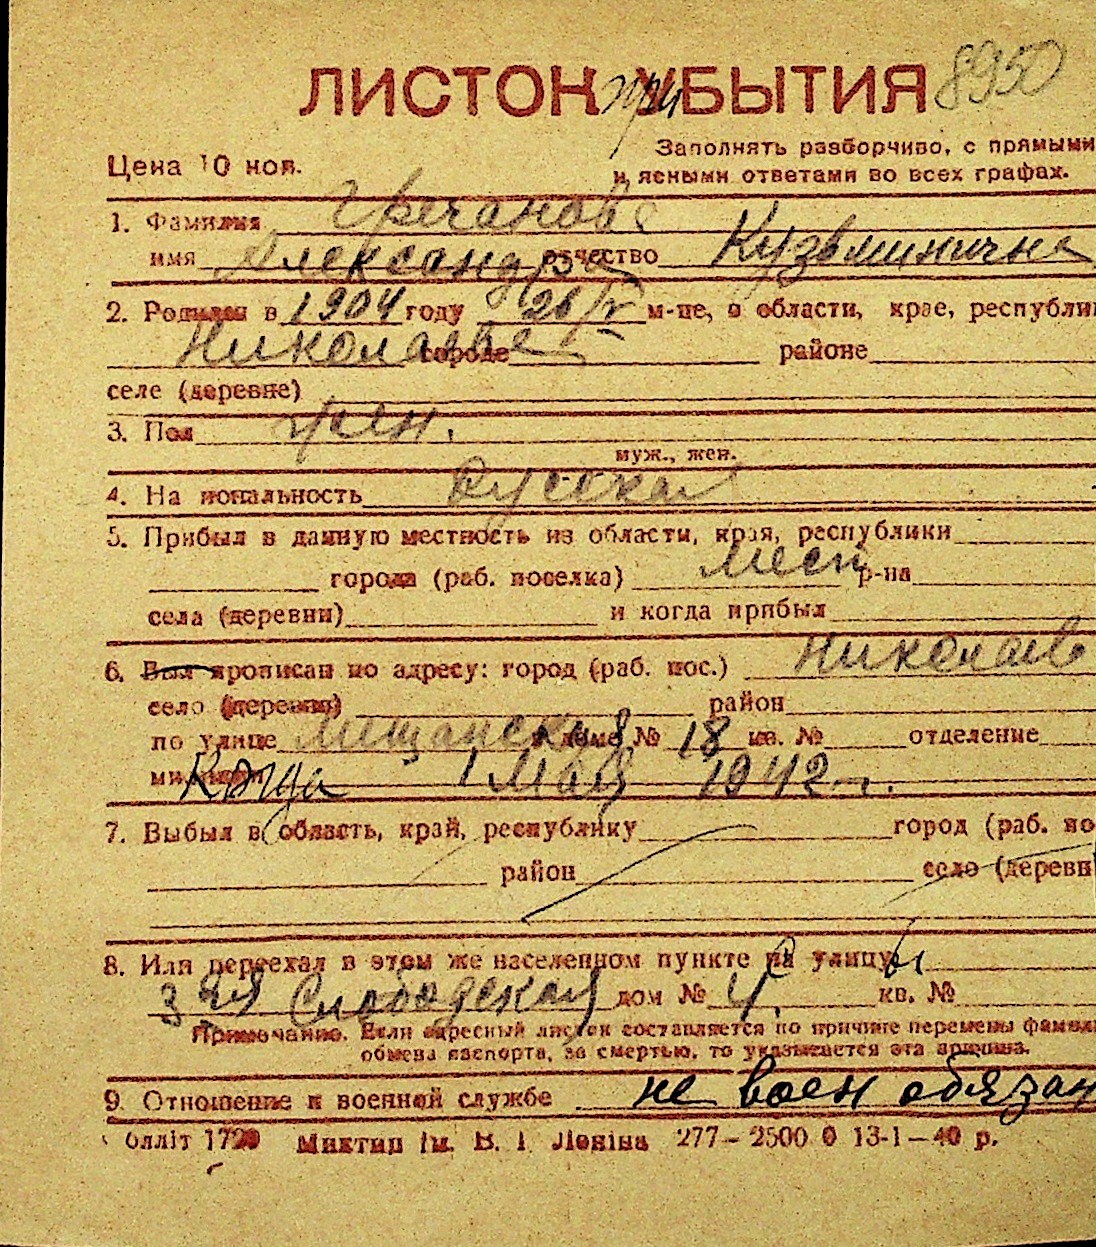 ЛИСТОК при УБЫТИЯ 8950
Цена 10 коп.
Заполнять разборчиво, с прямыми
и ясными ответами во всех графах.
1. Фамилия Гречанова
имя Александра отчество Кузьминична
2. Родился в 1904 году 26/V м-це, в области, крае, республи
Николаеве городе районе
селе (деревне)
3. Пол жен.
муж., жен.
4. На иональность Русская
5. Прибыл в данную местность из области, края, республики
города (раб. поселка) мест р-на
села (деревни) и когда прибыл
6. Был прописан по адресу: город (раб. пос.) Николаев
село (деревня) район
по улице Мещанская доме № 18 кв. № отделение
милиции Когда 1 Мая 1942 г.
7. Выбыл в область, край, республику город (раб. по
район село (деревн
8. Или переехал в этом же населенном пункте с улицы
3 ая Слободская дом № 4. кв. №
Примечание. Если адресный листок составляется по причине перемены фамил
обмена паспорта, за смертью, то указывается эта причина.
9. Отношение к военной службе не воен обязан
олліт 1790 Миктип ім. В. І. Леніна 277–2500 0 13-1–40 р.